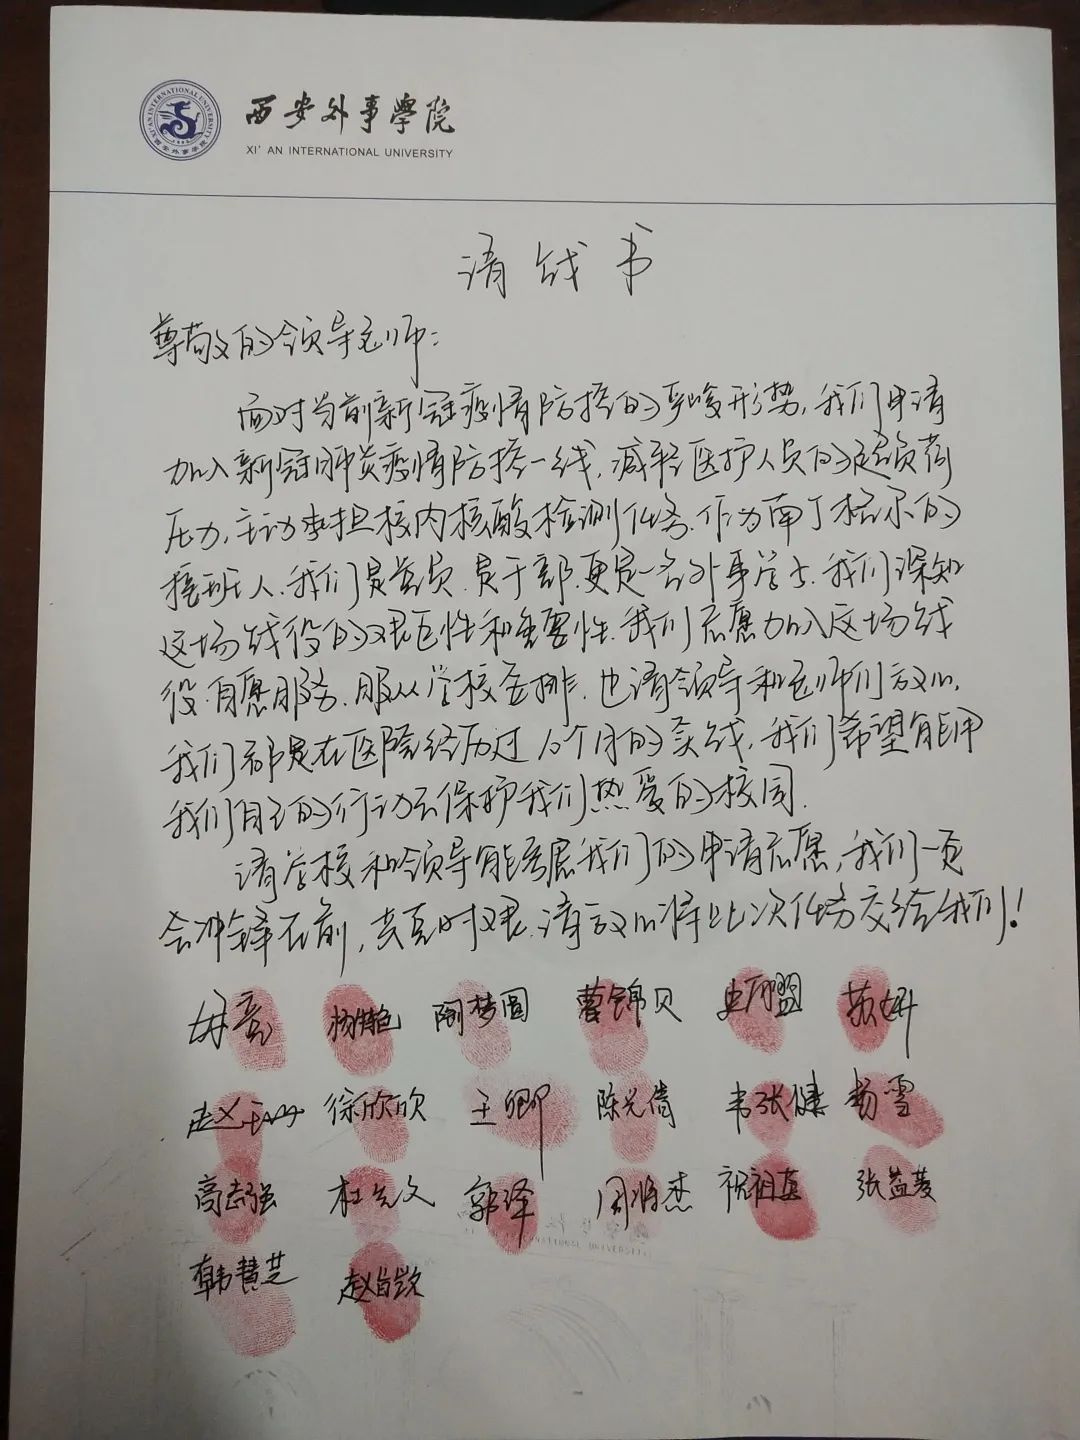 西安外事學院
XI' AN INTERNATIONAL UNIVERSITY
请战书
尊敬的领导老师：
面对当前新冠疫情防控的严峻形势，我们申请
加入新冠肺炎疫情防控一线，减轻医护人员的超负荷
压力，主动承担校内核酸检测任务，作为南丁格尔的
接班人，我们是党员，是干部，更是一名外事学士，我们深知
这场战役的艰巨性和重要性，我们志愿加入这场战
役，自愿服务，服从学校安排，也请领导和老师们放心，
我们都是在医院经历过10个月的实战，我们希望能用
我们自己的行动去保护我们热爱的校园.
请学校和领导能考虑我们的申请志愿，我们一定
会冲锋在前，共克时艰，请放心将此次任务交给我们！
杨艳 陶梦圆 曹锦贝
徐欣欣 王卿 陈光倩 韦张健 杨雪
高志强 杜文 郭泽 周将杰 祝祖英 张益菱
韩慧芝